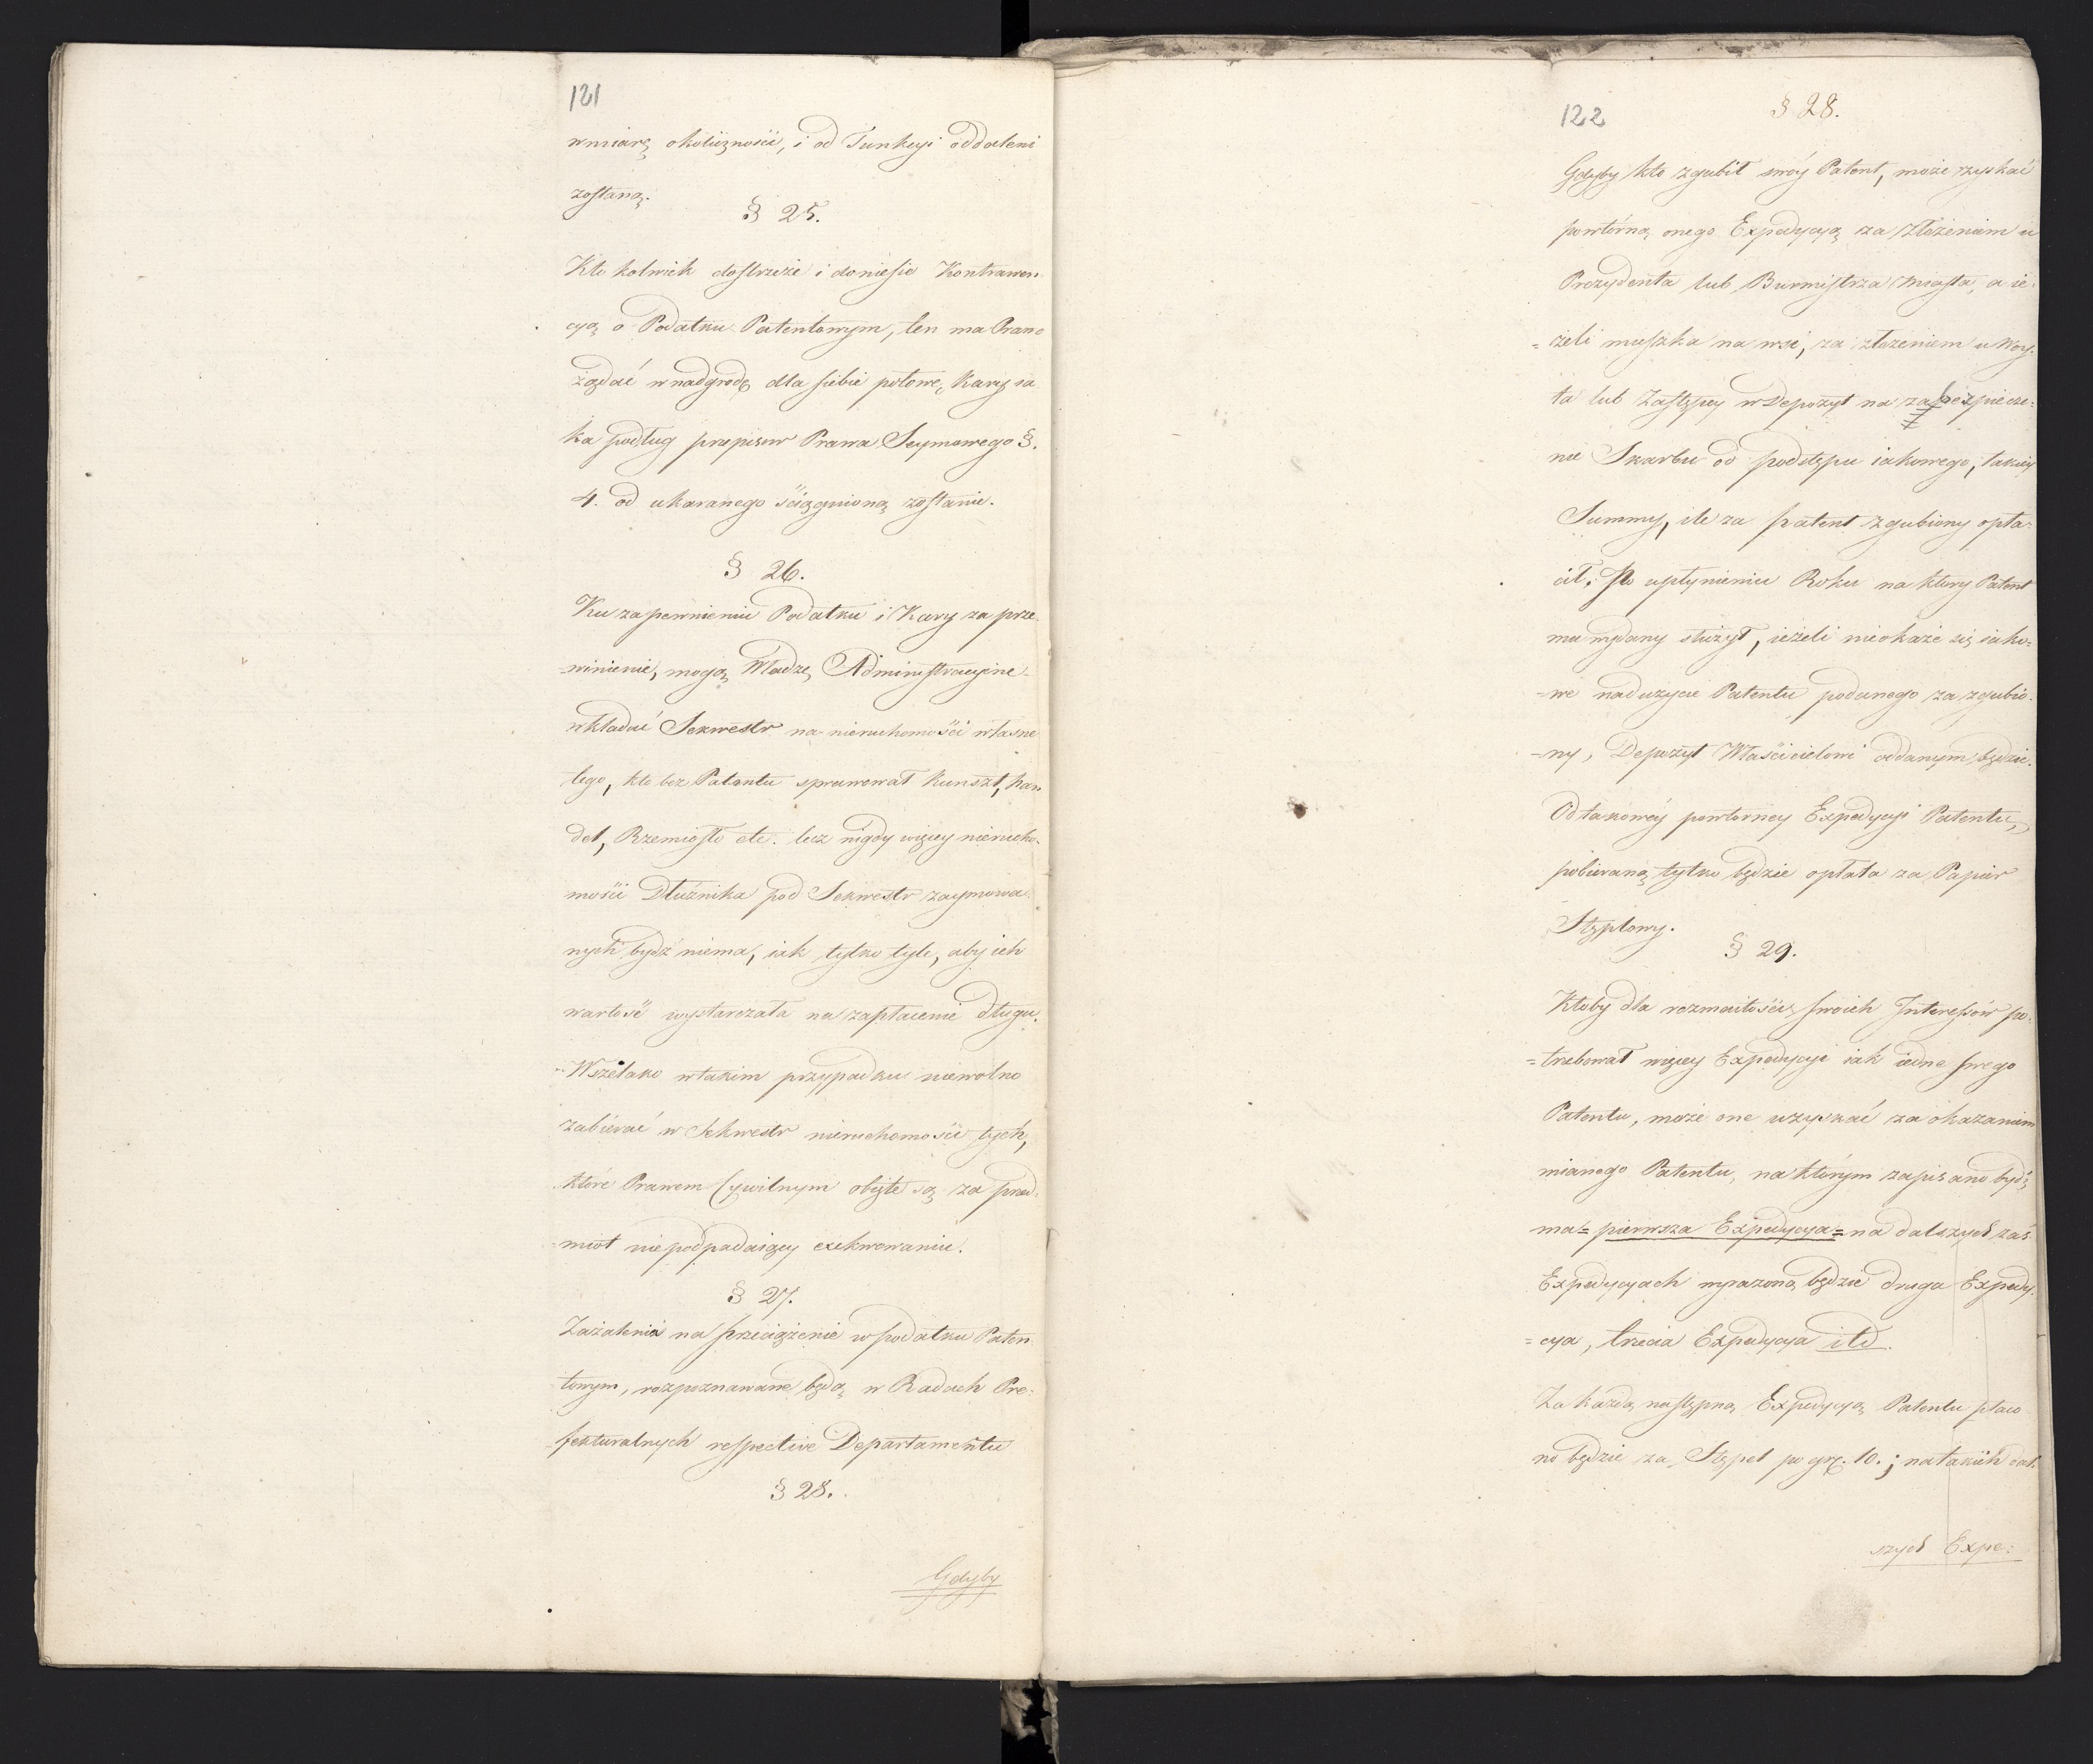 121
w miarę okoliczności, i od Funkcyi oddaleni
zostaną.
§ 25.
Kto kolwiek dostrzeże i doniesie Kontrawen-
cyą o Podatku Patentowym, ten ma Prawo
żądać w nadgrodę dla siebie połowę Kary ia
ka podług przepisow Prawa Seymowego §.
4. od ukaranego ściągnioną zostanie.
§ 26.
Ku zapewnieniu Podatku i Kary za prze-
-winienie, mogą Władze Administracyine
wkładać Sekwestr na nieruchomości własne
tego, kto bez Patentu sprawował Kunszt, han
del, Rzemiosło etc. lecz nigdy więcy nierucho-
mości Dłużnika pod Sekwestr zaymowa-
nych bydź niema, iak tylko tyle, aby ich
wartość wystarczała na zapłacenie długu.
Wszelako w takim przypadku niewolno
zabierać w Sekwestr nieruchomości tych,
które Prawem Cywilnym obięte są za przed-
-miot niepodpadaiący exekwowaniu.
§ 27.
Zażalenia na przeciążenie w podatku Paten
towym, rozpoznawane będą w Radach Pre-
fekturalnych respective Departamentu
§ 28.
Gdyby
122
§ 28.
Gdyby kto zgubił swóy Patent, może zyskać
powtórną onego Expedycyą za złożeniem u
Prezydenta lub Burmistrza Miasta, a ie-
=żeli mieszka na wsi, za złożeniem u Woy-
ta lub Zastępcy w Depozyt na zabezpiecze-
nie Skarbu od podstępu iakowego, takiey
Summy, ile za patent zgubiony opła-
cił. Po upłynieniu Roku na ktory Patent
mu wydany służył, ieżeli nieokaże się iako-
-we nadużycie Patentu podanego za zgubio-
-ny, Depozyt Właścicielowi oddanym będzie.
Od takowéy powtorney Expedycyi Patentu,
pobieraną tylko będzie opłata za Papier
Stęplowy.
§ 29.
Ktoby dla rozmaitości swoich Interessów po-
=trzebował więcey Expedycyi iak iedne swego
Patentu, może one uzyskać za okazaniem
mianego Patentu, na którym zapisano bydź
ma = pierwsza Expedycya = na dalszych zaś
Expedycyach wyrażoną będzie druga Expedy-
=cya, trzecia Expedycya itd.
Za każdą następną Expedycyą Patentu płaco
no będzie za Stępel po gr. 10.; na takich dal-
szych Expe-